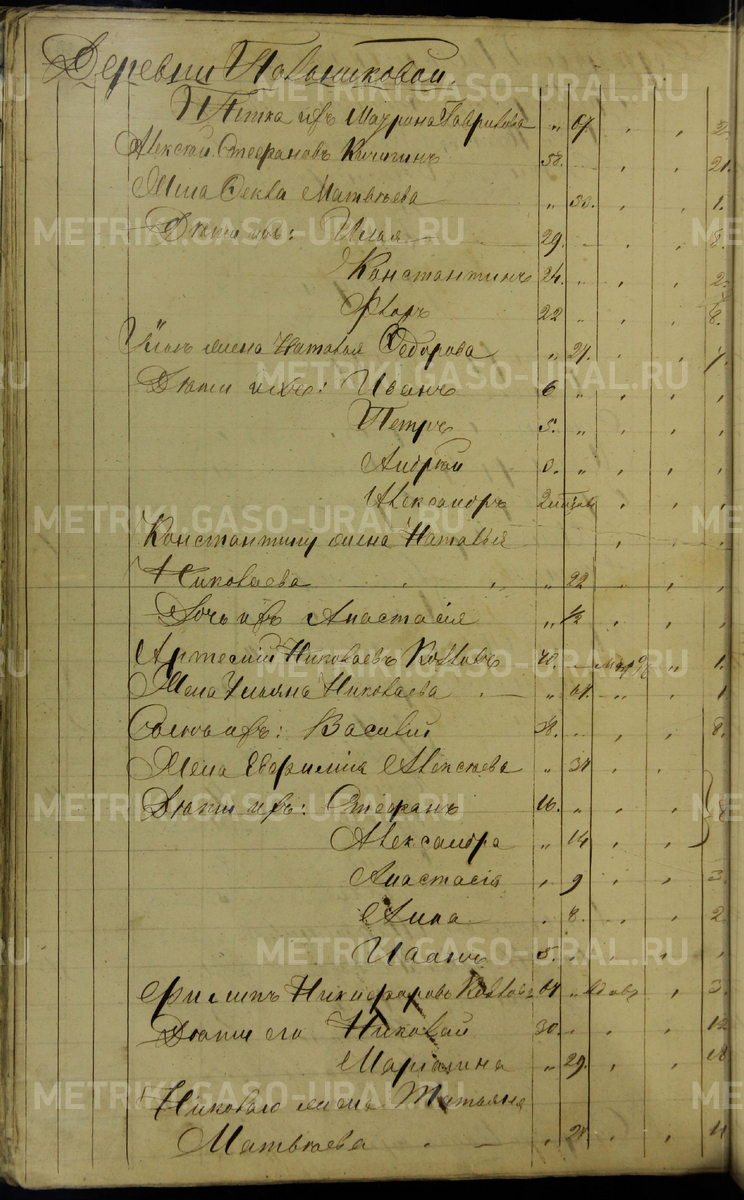 Деревни Павлниковой.
Тетка ихъ Маурина Гаврилова " 67. , , 2.
Алексей Стефановъ Кичигинъ 58. 21.
Жена Фекла Матвѣева " 53. , , 1.
Дѣти ихъ: Илья 29. , , 8.
Константинъ 24. , , 2.
Флоръ 22 " , , 8.
Ильи жена Наталья Ѳедорова " 27. , , 7.
Дѣти ихъ: Иванъ 6 " , , ,
Петръ 5. " , , ,
Андрей " , , ,
Александръ , , ,
Константину жена Наталья , ,
Николаева " 22 " , ,
Дочь ихъ Анастасія " 1/2 , , ,
Артемій Николаевъ Козловъ 70. " 1.
Жена Ульяна Николаева " 61. " , 1
Сынъ ихъ: Василій 38. , , 8.
Жена Евфимія Алексѣева " 37 , ,
Дѣти ихъ: Стефанъ 16. " , , 8
Александра " 14 , ,
Анастасія , 9 , , 3.
Анна , 8. , , 2
Иванъ 5. , , ,
Филипъ Никифоровъ Козловъ 64 " вдовъ , 3.
Дѣти его Николай 30. , , 12
Маріамна " 29. , , 18
Николаю жена Татьяна
Матвѣева , 28 , , 11
METRIKI.GASO-URAL.RU